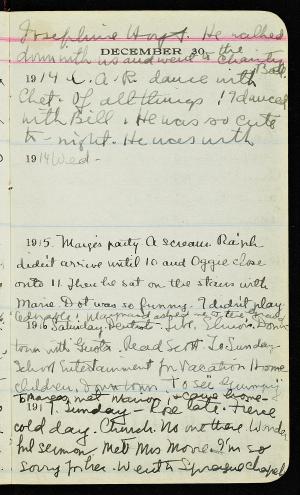 Josephine Hoyt. He walked
down with us and went to the Charity
Ball.
DECEMBER 30
1914 C. A. R. dance with
Chet. Of all things! I danced
with Bill. He was so cute
to-night. He was with
1914 Wed-
1915. Marge's party. A scream. Ralph
didn't arrive until 10 and Oggie close
onto 11. Then he sat on the stairs with
Marie. Dot was so funny. I didn't play
1916 Saturday. Dentist. Down
town with Read Scott to Sunday-
School Entertainment for Vacation Home
children. Downtown to see
met Marion, & came home-
1917. Sunday- Rose late. Fierce
cold day. Church. No one there. Wonder-
ful sermon. Met Mrs Moore. I'm so
sorry for her. Went to Sprague Chapel